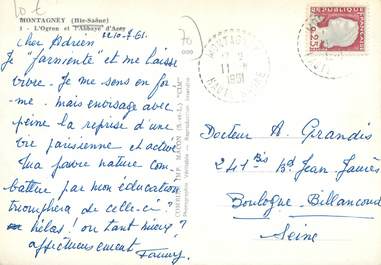 MONTAGNEY (Hte-Saône)
1 - L'Ognon et l'Abbaye d'Acey
Cher Adrien
Je "farniente" et me laisse
vivre. Je me sens en for-
me. mais envisage avec
peine la reprise d'une
vie parisienne et active
Ma pauvre nature com-
battue par mon éducation
triomphera de celle-ci?
hélas! ou tant mieux?
affectueusement
COMBIER IMP. MACON (S.-et-L.) "CIM"
Photographie Véritable - Reproduction interdite
REPUBLIQUE FRANCAISE
0,25
11
1961
HAUTE SAONE
Docteur A. Grandis
241 bis Bd Jean Jaurès
Boulogne-Billancourt
Seine